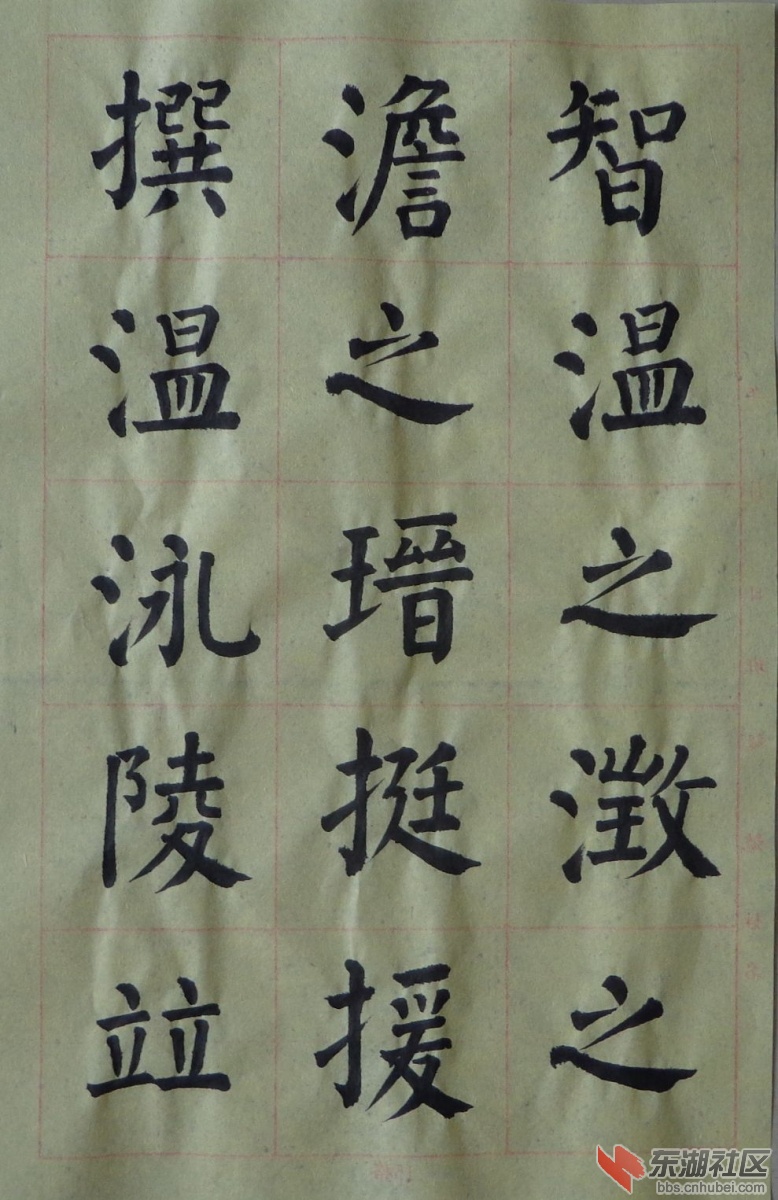 智温之澂之
澹之瑨挺援
撰温泳陵竝
东湖社区
bbs.cnhubei.com